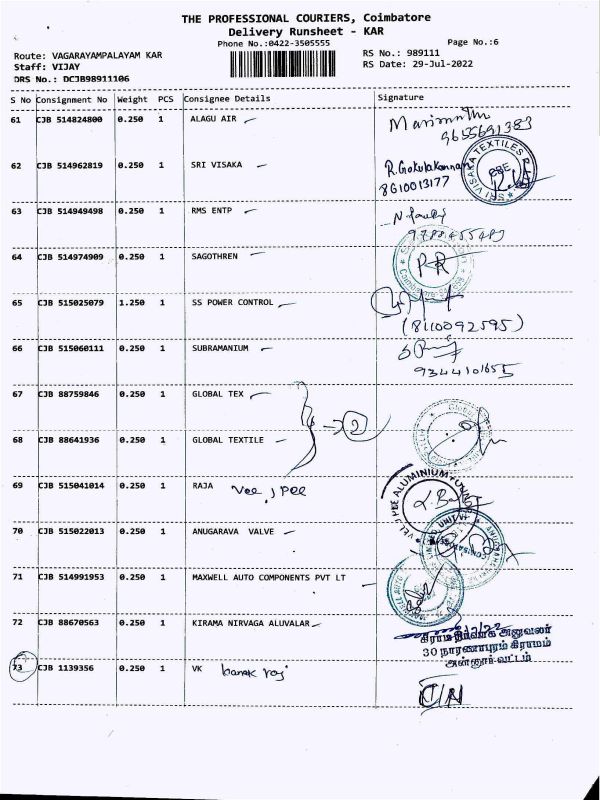 THE PROFESSIONAL COURIERS, Coimbatore
Delivery Runsheet - KAR
Phone No.:0422-3505555 Page No.:6
Route: VAGARAYAMPALAYAM KAR RS No.: 989111
Staff: VIJAY RS Date: 29-Jul-2022
DRS No.: DCJB98911106
S No Consignment No Weight PCS Consignee Details Signature
61 CJB 514824800 0.250 1 ALAGU AIR
9655691383
62 CJB 514962819 0.250 1 SRI VISAKA R.Gokulakannan
8610013177
SRI VISAKA TEXTILES
63 CJB 514949498 0.250 1 RMS ENTP
64 CJB 514974909 0.250 1 SAGOTHREN
65 CJB 515025079 1.250 1 SS POWER CONTROL
(8110092595)
66 CJB 515060111 0.250 1 SUBRAMANIUM
9344101655
67 CJB 88759846 0.250 1 GLOBAL TEX
2
Global
68 CJB 88641936 0.250 1 GLOBAL TEXTILE
69 CJB 515041014 0.250 1 RAJA Vee J Pee
VEE J PEE ALUMINIUM
70 CJB 515022013 0.250 1 ANUGARAVA VALVE
71 CJB 514991953 0.250 1 MAXWELL AUTO COMPONENTS PVT LT
72 CJB 88670563 0.250 1 KIRAMA NIRVAGA ALUVALAR
கிராம நிர்வாக அலுவலர்
30 நாரணாபுரம் கிராமம்
அன்னூர் வட்டம்
73 CJB 1139356 0.250 1 VK kanak raj